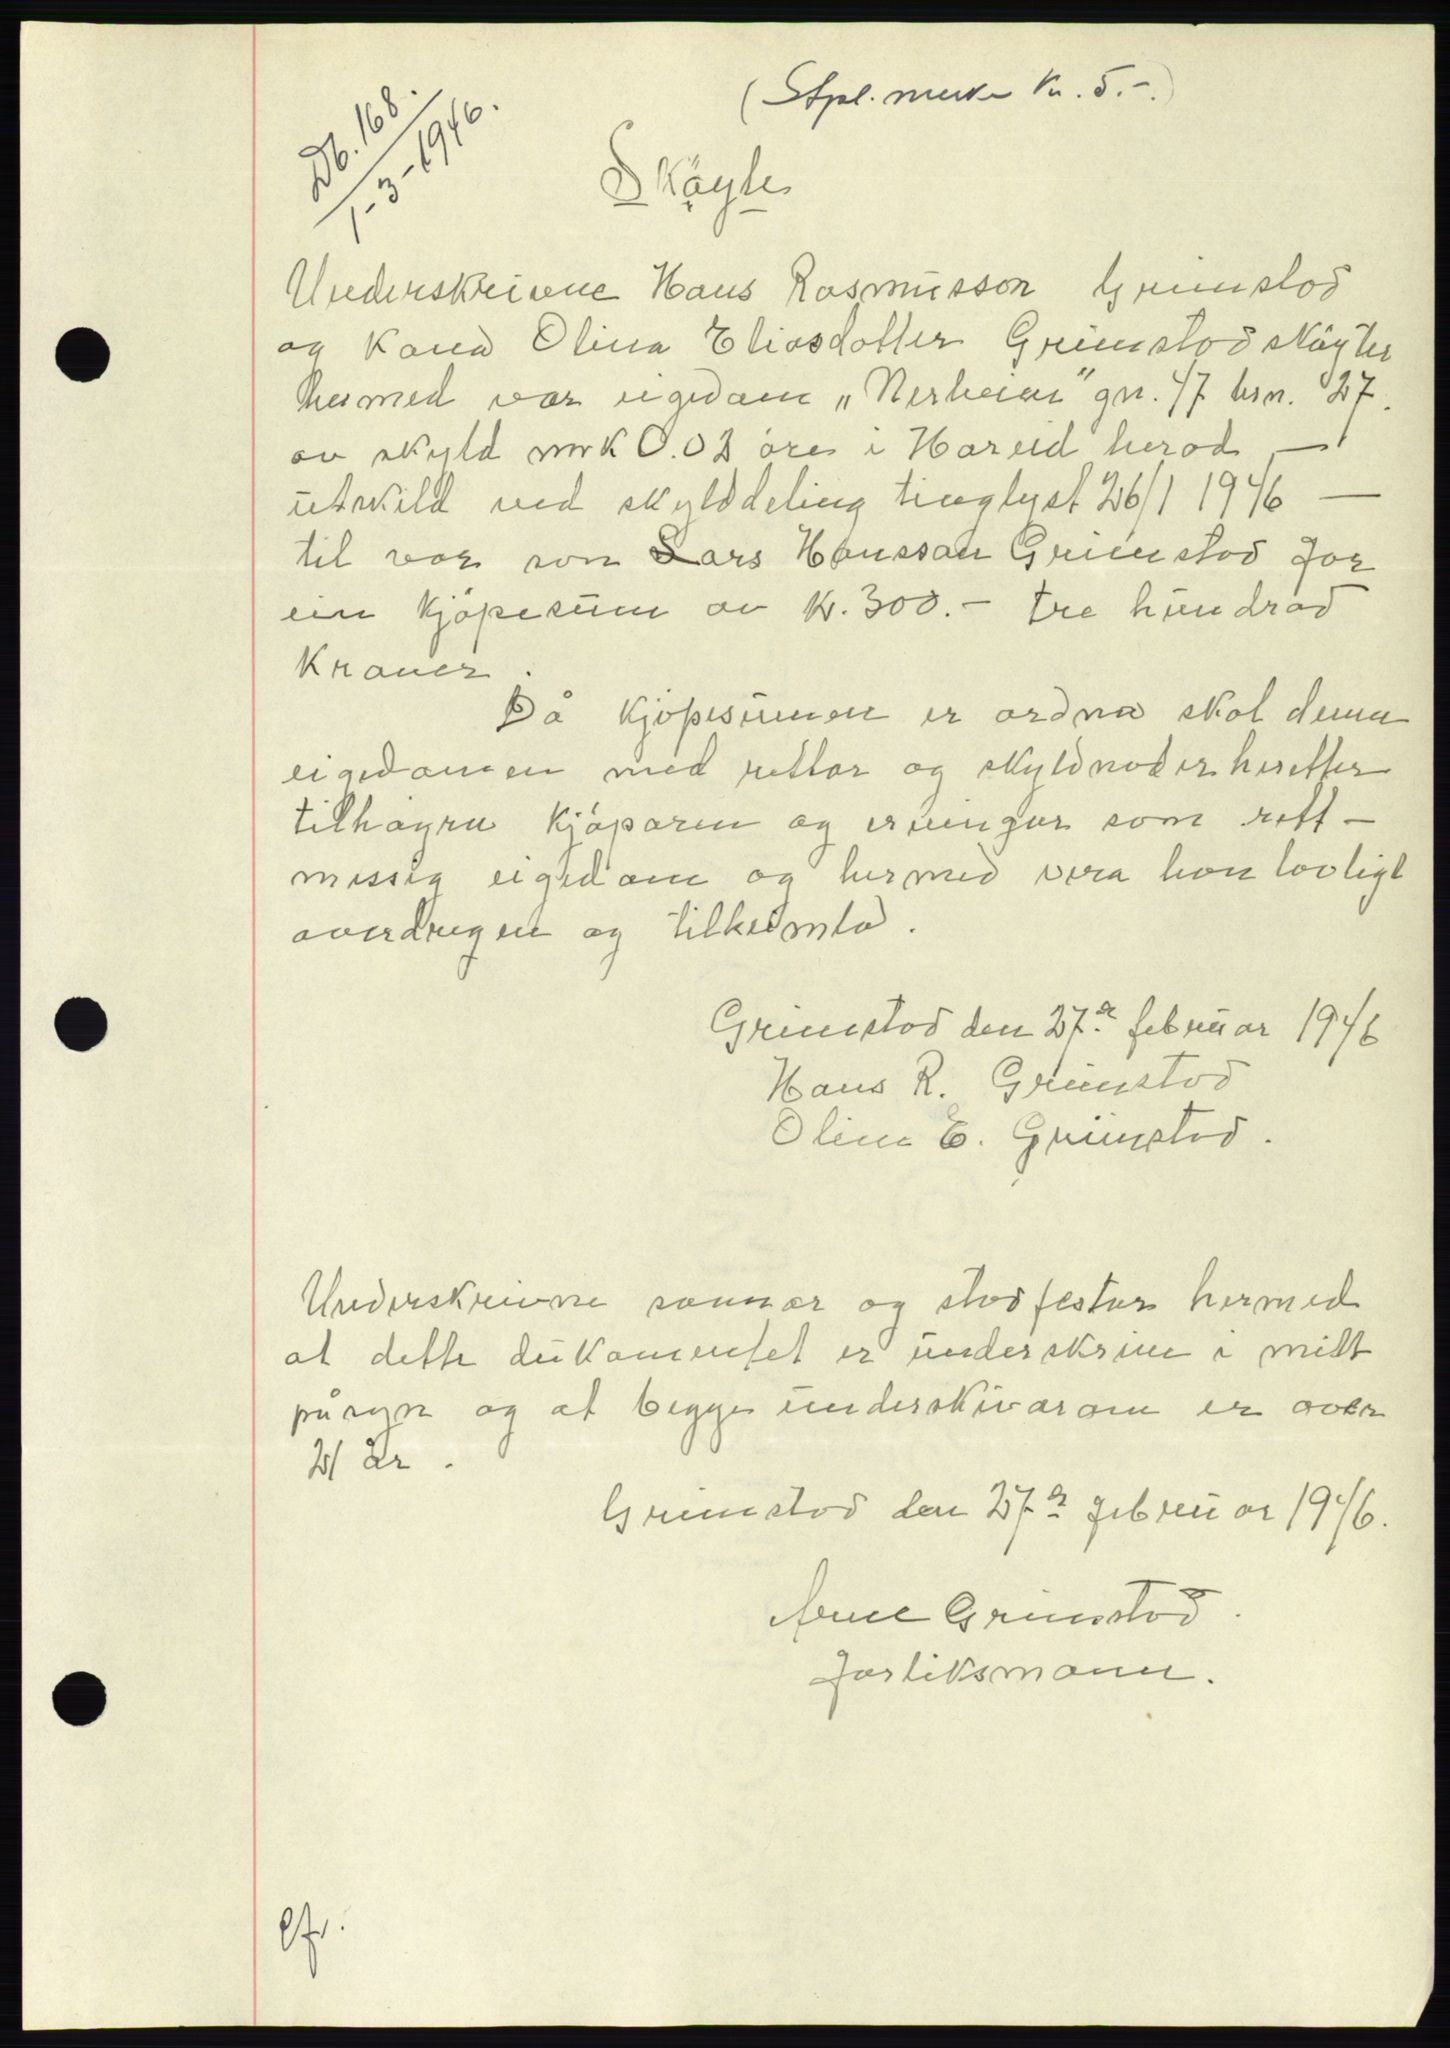 (Stpl. merke kr. 5.-.)
Db. 168.
1-3-1946.
Skøyte
Underskrivne Hans Rasmusson Grimstad
og kona Olina Eliasdotter Grimstad skøyter
hermed vor eigedom „Nerheim" gn. 47 brn. 27.
av skyld mrk 0.02 øre i Hareid herad —
utskild ved skylddeling tinglyst 26/1 1946 —
til vor son Lars Hansson Grimstad for
ein kjøpesum av kr. 300.- tre hundrad
Kroner.
Då kjøpesumen er ordna skal denne
eigedomen med rettar og skyldnader heretter
tilhøyra kjøparen og ervingar som rett-
messig eigedom og hermed vera han lovligt
overdregen og tilheimla.
Grimstad den 27de februar 1946
Hans R. Grimstad
Olina E. Grimstad.
Underskrivne sannar og stadfestar hermed
at dette dukomentet er underskrive i mitt
påsyn og at begge underskivarane er over
21 år.
Grimstad den 27de februar 1946.
Arne Grimstad.
forliksmann.